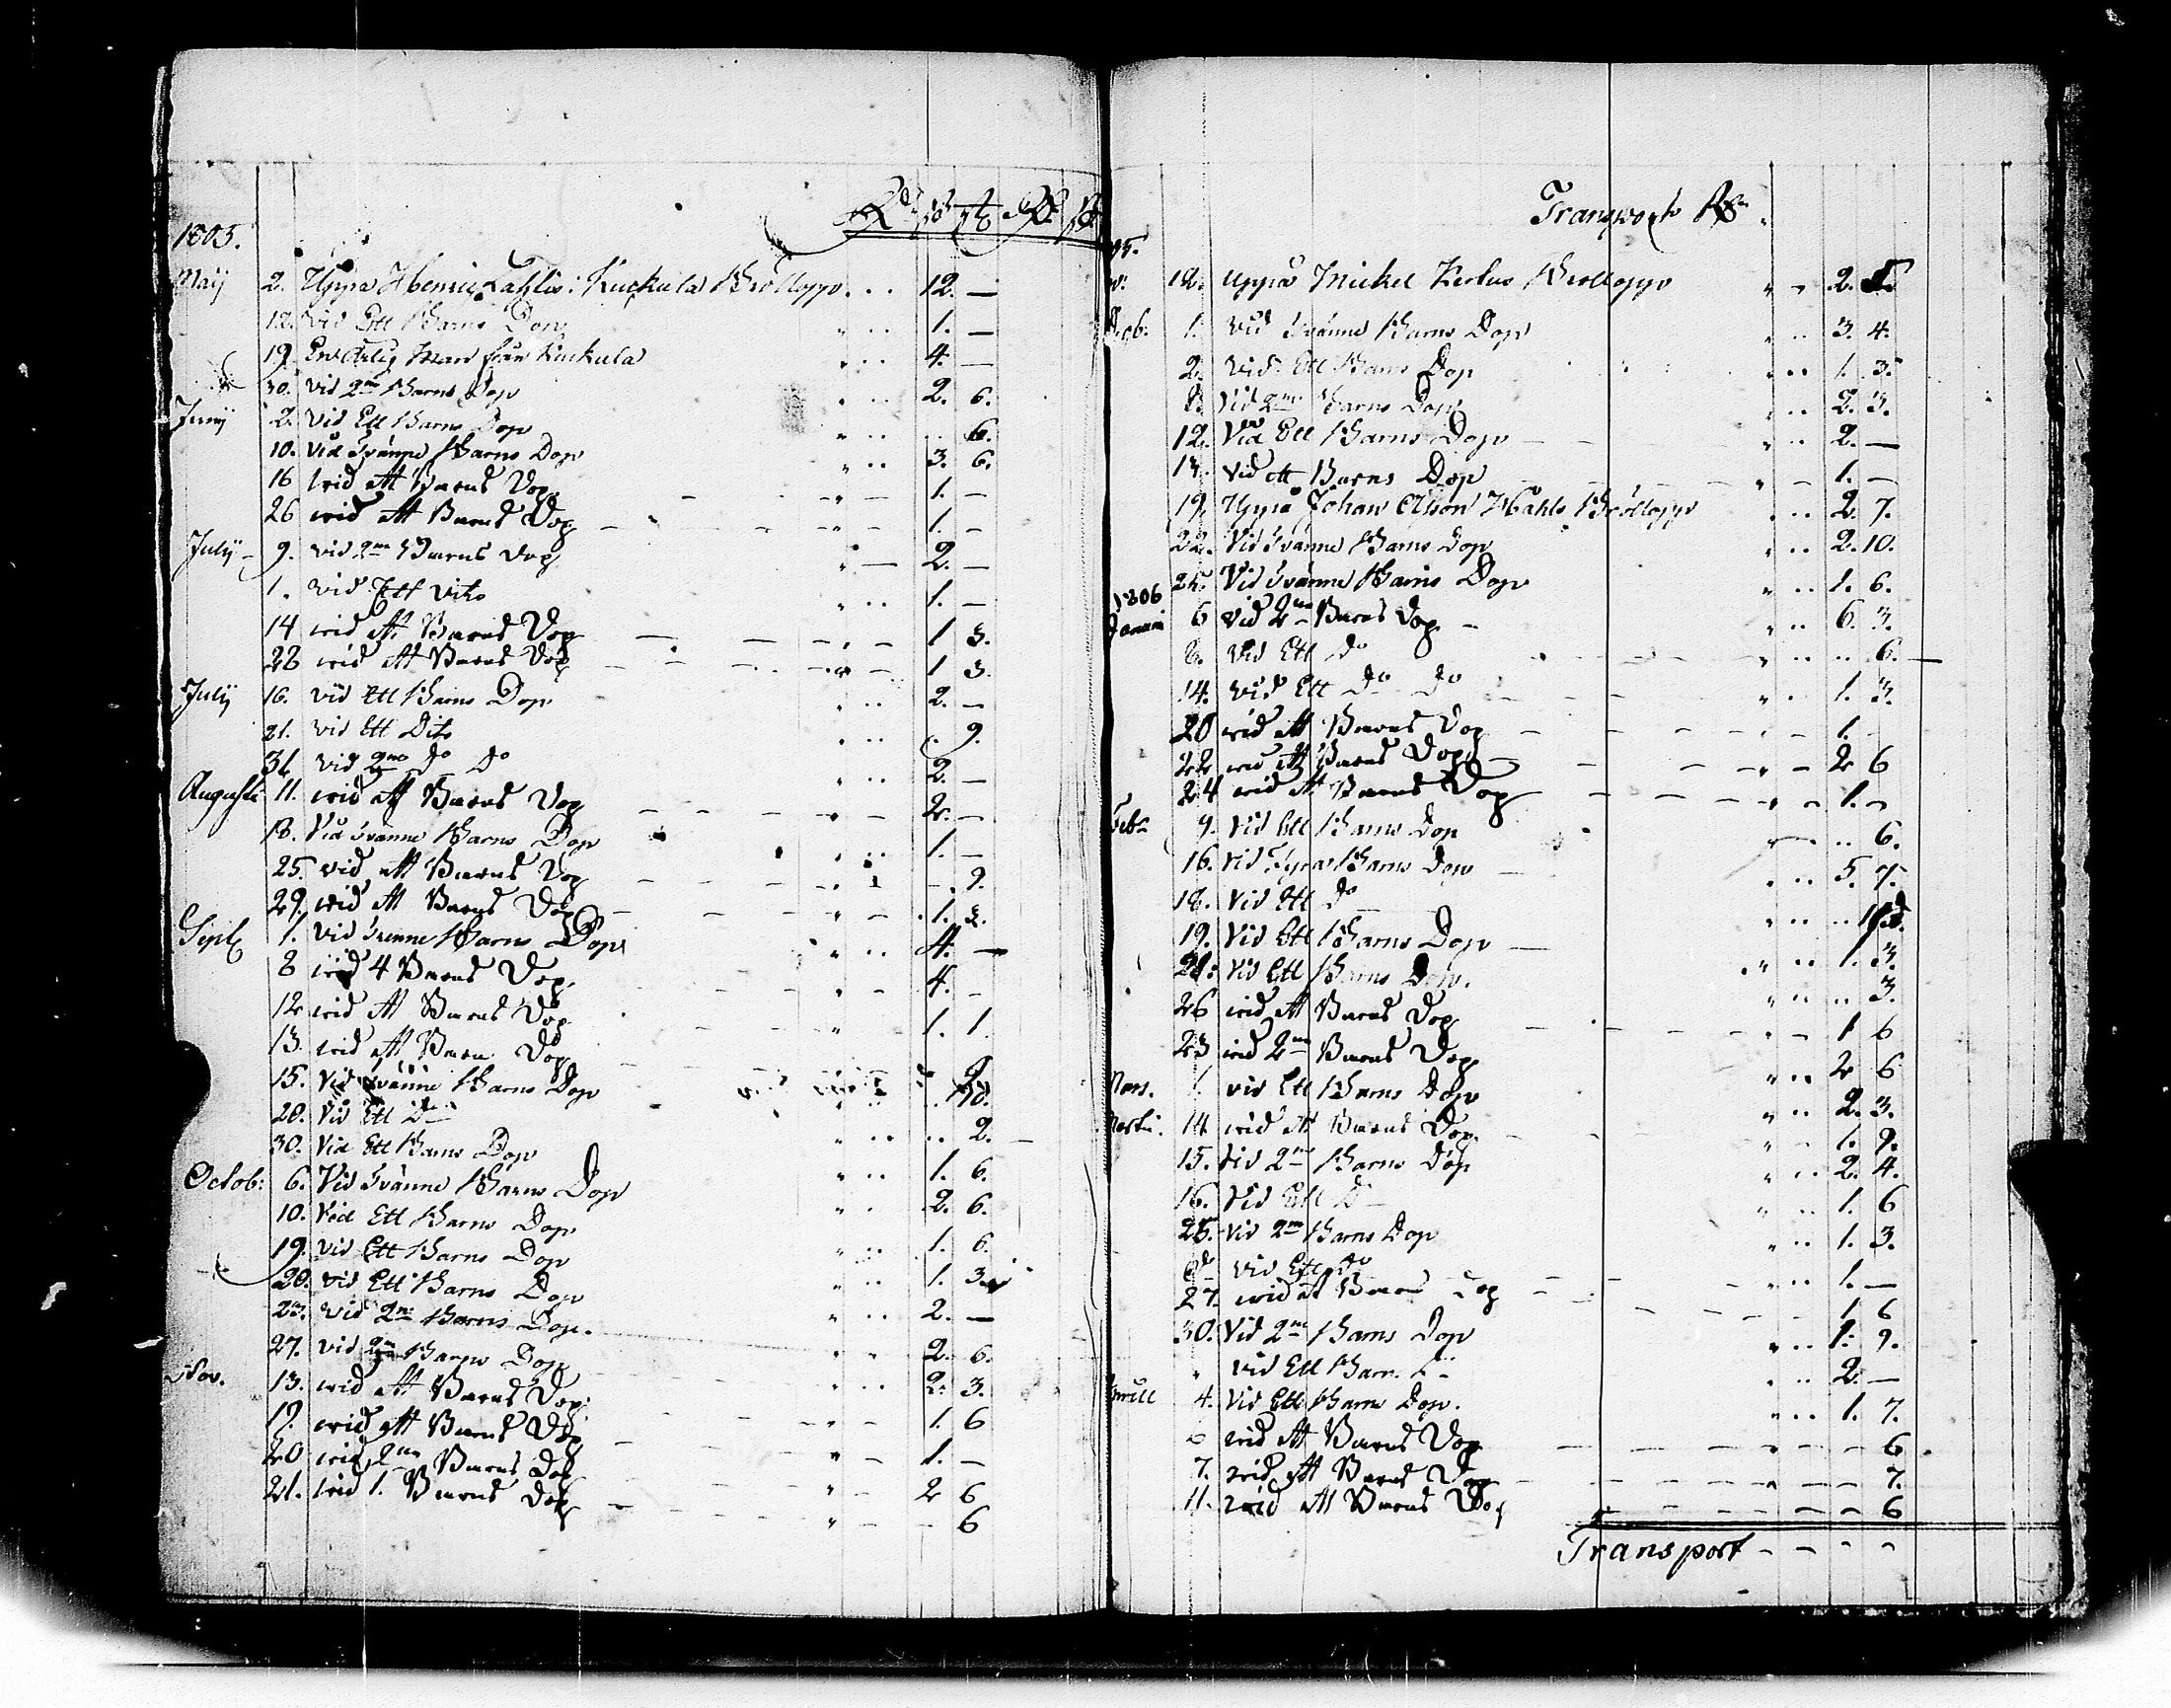 Rd ß
1805.
Maij 2. Uppå Henric Lassis: Kuckula Brölopp . . . 12. —
12. Vid Ett Barns Dop " . . 1. —
19. En ärlig Man från Kuckula " . . 4. —
30. Vid 2ne Barns Dop " . . 2. 6.
Junij 2. Vid Ett Barns Dop " . . . . 6.
10. Vid Tvänne Barns Dop " . . 3. 6.
16 wid ett Barns Dop " — 1. —
26 wid ett Barns Dop " — 1. —
Julij 9. vid 2ne Barns Dop " — 2. —
1. vid Ett Dito " . . 1. —
14 wid ett Barns Dop " — 1 3.
28 wid ett Barns Dop " — 1 3.
Julij 16. vid Ett Barns Dop " . . 2. —
21. vid Ett Dito " . . . . 9.
31. vid 2ne do do " . . 2. —
Augusti 11. wid ett Barns Dop " — 2. —
18. Vid Tvänne Barns Dop " . . 1. —
25. vid ett Barns Dop — . 9.
29. wid ett Barns Dop " — 1. 3.
Sept 1. Vid Tvenne Barns Dop " . . 4. —
8 wid 4 Barns Dop " — 4. —
12 wid ett Barns Dop " 1. 1
13. wid ett Barn Dop
15. Vid Tvänne Barns Dop 10.
20. Vid Ett D— " . . . . 2.
30. Vid Ett Barns Dop " . . 1. 6.
Octob: 6. Vid Tvänne Barns Dop " . . 2. 6.
10. Vid Ett Barns Dop " . . 1. 6.
19. Vid Ett Barns Dop " . . 1. 3.
20. Vid Ett Barns Dop " . . 2. —
23. Vid 2ne Barns Dop. " . . 2. 6.
27. vid 2ne Barns Dop " . . 2. 3.
Nov. 13. wid ett Barns Dop " — 1. 6
17. wid ett Barns Dop " — 1. —
20 wid 2ne Barns Dop " — 2 6
21. wid 1. Barns Dop " — — 6
Transport
12. Uppå Mickel Brollopp " — 2.
1. Vid Tvänne Barns Dop " . . 3. 4.
2. Vid Ett Barns Dop " . . 1. 3.
8. Vid 2ne Barns Dop " . . 2. 3.
12. Vid Ett Barns Dop " . . 2. —
13. Vid ett Barns Dop " — 1. —
19. Uppå Johan Olsson Brölopp " . . 2. 7.
22. Vid Tvänne Barns Dop " . . 2. 10.
25. Vid Tvänne Barns Dop " . . 1. 6.
1806
6 vid 2ne Barns Dop " . . 6. 3.
8. Vid Ett do " . . . . 6.
14. Vid Ett do do " . . 1. 3.
20 wid ett Barns Dop " — 1
22 wid ett Barns Dop " — 2 6
24 wid ett Barns Dop " — 1. —
Feb. 9. Vid Ett Barns Dop . . 6.
16. Vid Fyra Barns Dop " . . 5. 7.
18. Vid Ett do " . .
19. Vid Ett Barns Dop " . . 1. 3.
21. Vid Ett Barns Dop. " . . . . 3.
26 wid ett Barns Dop " — 1 6
23 wid 2ne Barns Dop " . . 2 6
Mars. 1. vid Ett Barns Dop " . . 2. 3.
14 wid ett Barns Dop " . . 1. 9.
15. Vid 2ne Barns Dop " . . 2. 4.
16. Vid Ett D— " . . 1. 6
25. Vid 2ne Barns Dop " . . 1. 3.
do vid Ett do " . . 1. —
27. wid ett Barns Dop — — 1 6
30. Vid 2ne Barns Dop " . . 1. 9.
" vid Ett Barn " . . 2. —
4. Vid Ett Barns Dop. " . . 1. 7.
6 wid ett Barns Dop " — — 6
7. wid ett Barns Dop " — — 7.
11. wid ett Barns Dop — — 6
Transport — — — —